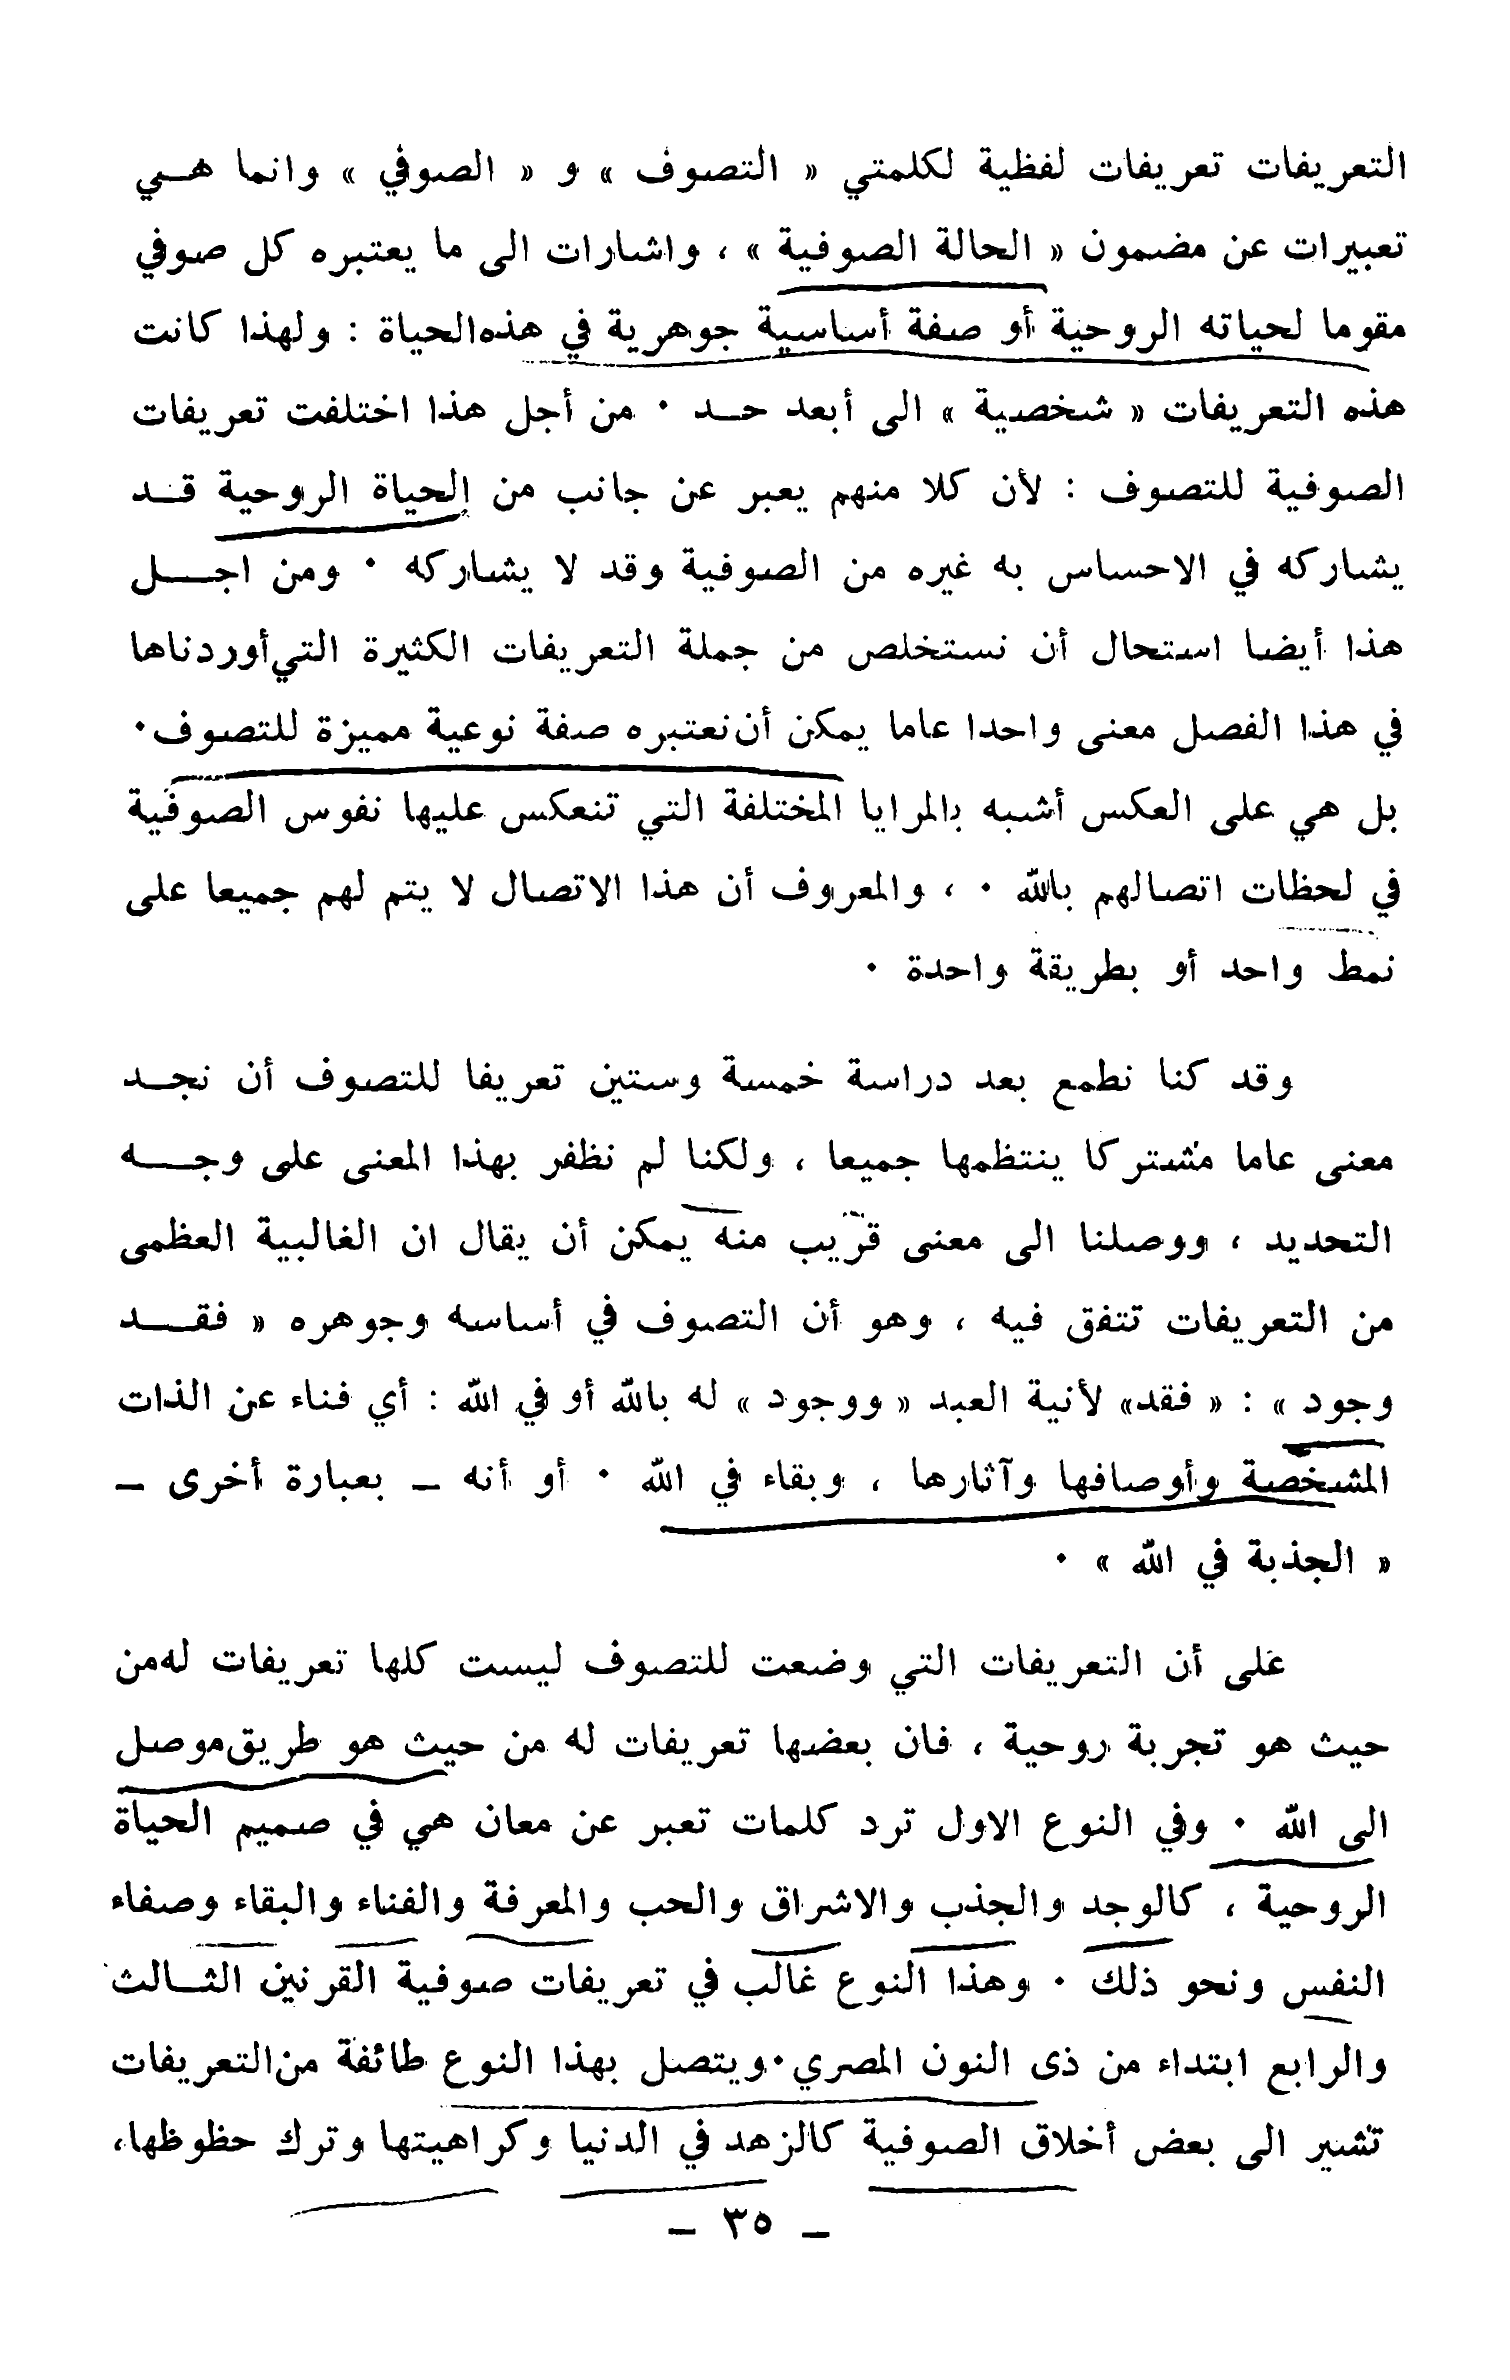 التعريفات تعريفات لفظية لكلمتي « التصوف » و « الصوفي » وانما هـي
تعبيرات عن مضمون « الحالة الصوفية » ، واشارات الى ما يعتبره كل صوفي
مقوما لحياته الروحية أو صفة أساسية جوهرية في هذه الحياة : ولهذا كانت
هذه التعريفات « شخصية » الى أبعد حـد ٠ من أجل هذا اختلفت تعريفات
الصوفية للتصوف : لأن كلا منهم يعبر عن جانب من الحياة الروحية قـد
يشاركه في الاحساس به غيره من الصوفية وقد لا يشاركه ٠ ومن اجـل
هذا أيضا استحال أن نستخلص من جملة التعريفات الكثيرة التي أوردناها
في هذا الفصل معنى واحدا عاما يمكن أن نعتبره صفة نوعية مميزة للتصوف ٠
بل هي على العكس أشبه بالمرايا المختلفة التي تنعكس عليها نفوس الصوفية
في لحظات اتصالهم بالله ٠ ، والمعروف أن هذا الاتصال لا يتم لهم جميعا على
نمط واحد أو بطريقة واحدة ٠
وقد كنا نطمع بعد دراسة خمسة وستين تعريفا للتصوف أن نجـد
معنى عاما مشتركا ينتظمها جميعا ، ولكنا لم نظفر بهذا المعنى على وجـه
التحديد ، ووصلنا الى معنى قريب منه يمكن أن يقال ان الغالبية العظمى
من التعريفات تتفق فيه ، وهو أن التصوف في أساسه وجوهره « فقـد
وجود » : « فقد» لأنية العبد « ووجود » له بالله أو في الله : أي فناء عن الذات
المشخصة وأوصافها وآثارها ، وبقاء في الله ٠ أو أنه – بعبارة أخرى –
« الجذبة في الله » ٠
على أن التعريفات التي وضعت للتصوف ليست كلها تعريفات له من
حيث هو تجربة روحية ، فان بعضها تعريفات له من حيث هو طريق موصل
الى الله ٠ وفي النوع الاول ترد كلمات تعبر عن معان هي في صميم الحياة
الروحية ، كالوجد والجذب والاشراق والحب والمعرفة والفناء والبقاء وصفاء
النفس ونحو ذلك ٠ وهذا النوع غالب في تعريفات صوفية القرنين الثـالث
والرابع ابتداء من ذى النون المصري ٠ ويتصل بهذا النوع طائفة من التعريفات
تشير الى بعض أخلاق الصوفية كالزهد في الدنيا وكراهيتها وترك حظوظها،
– ٣٥ –